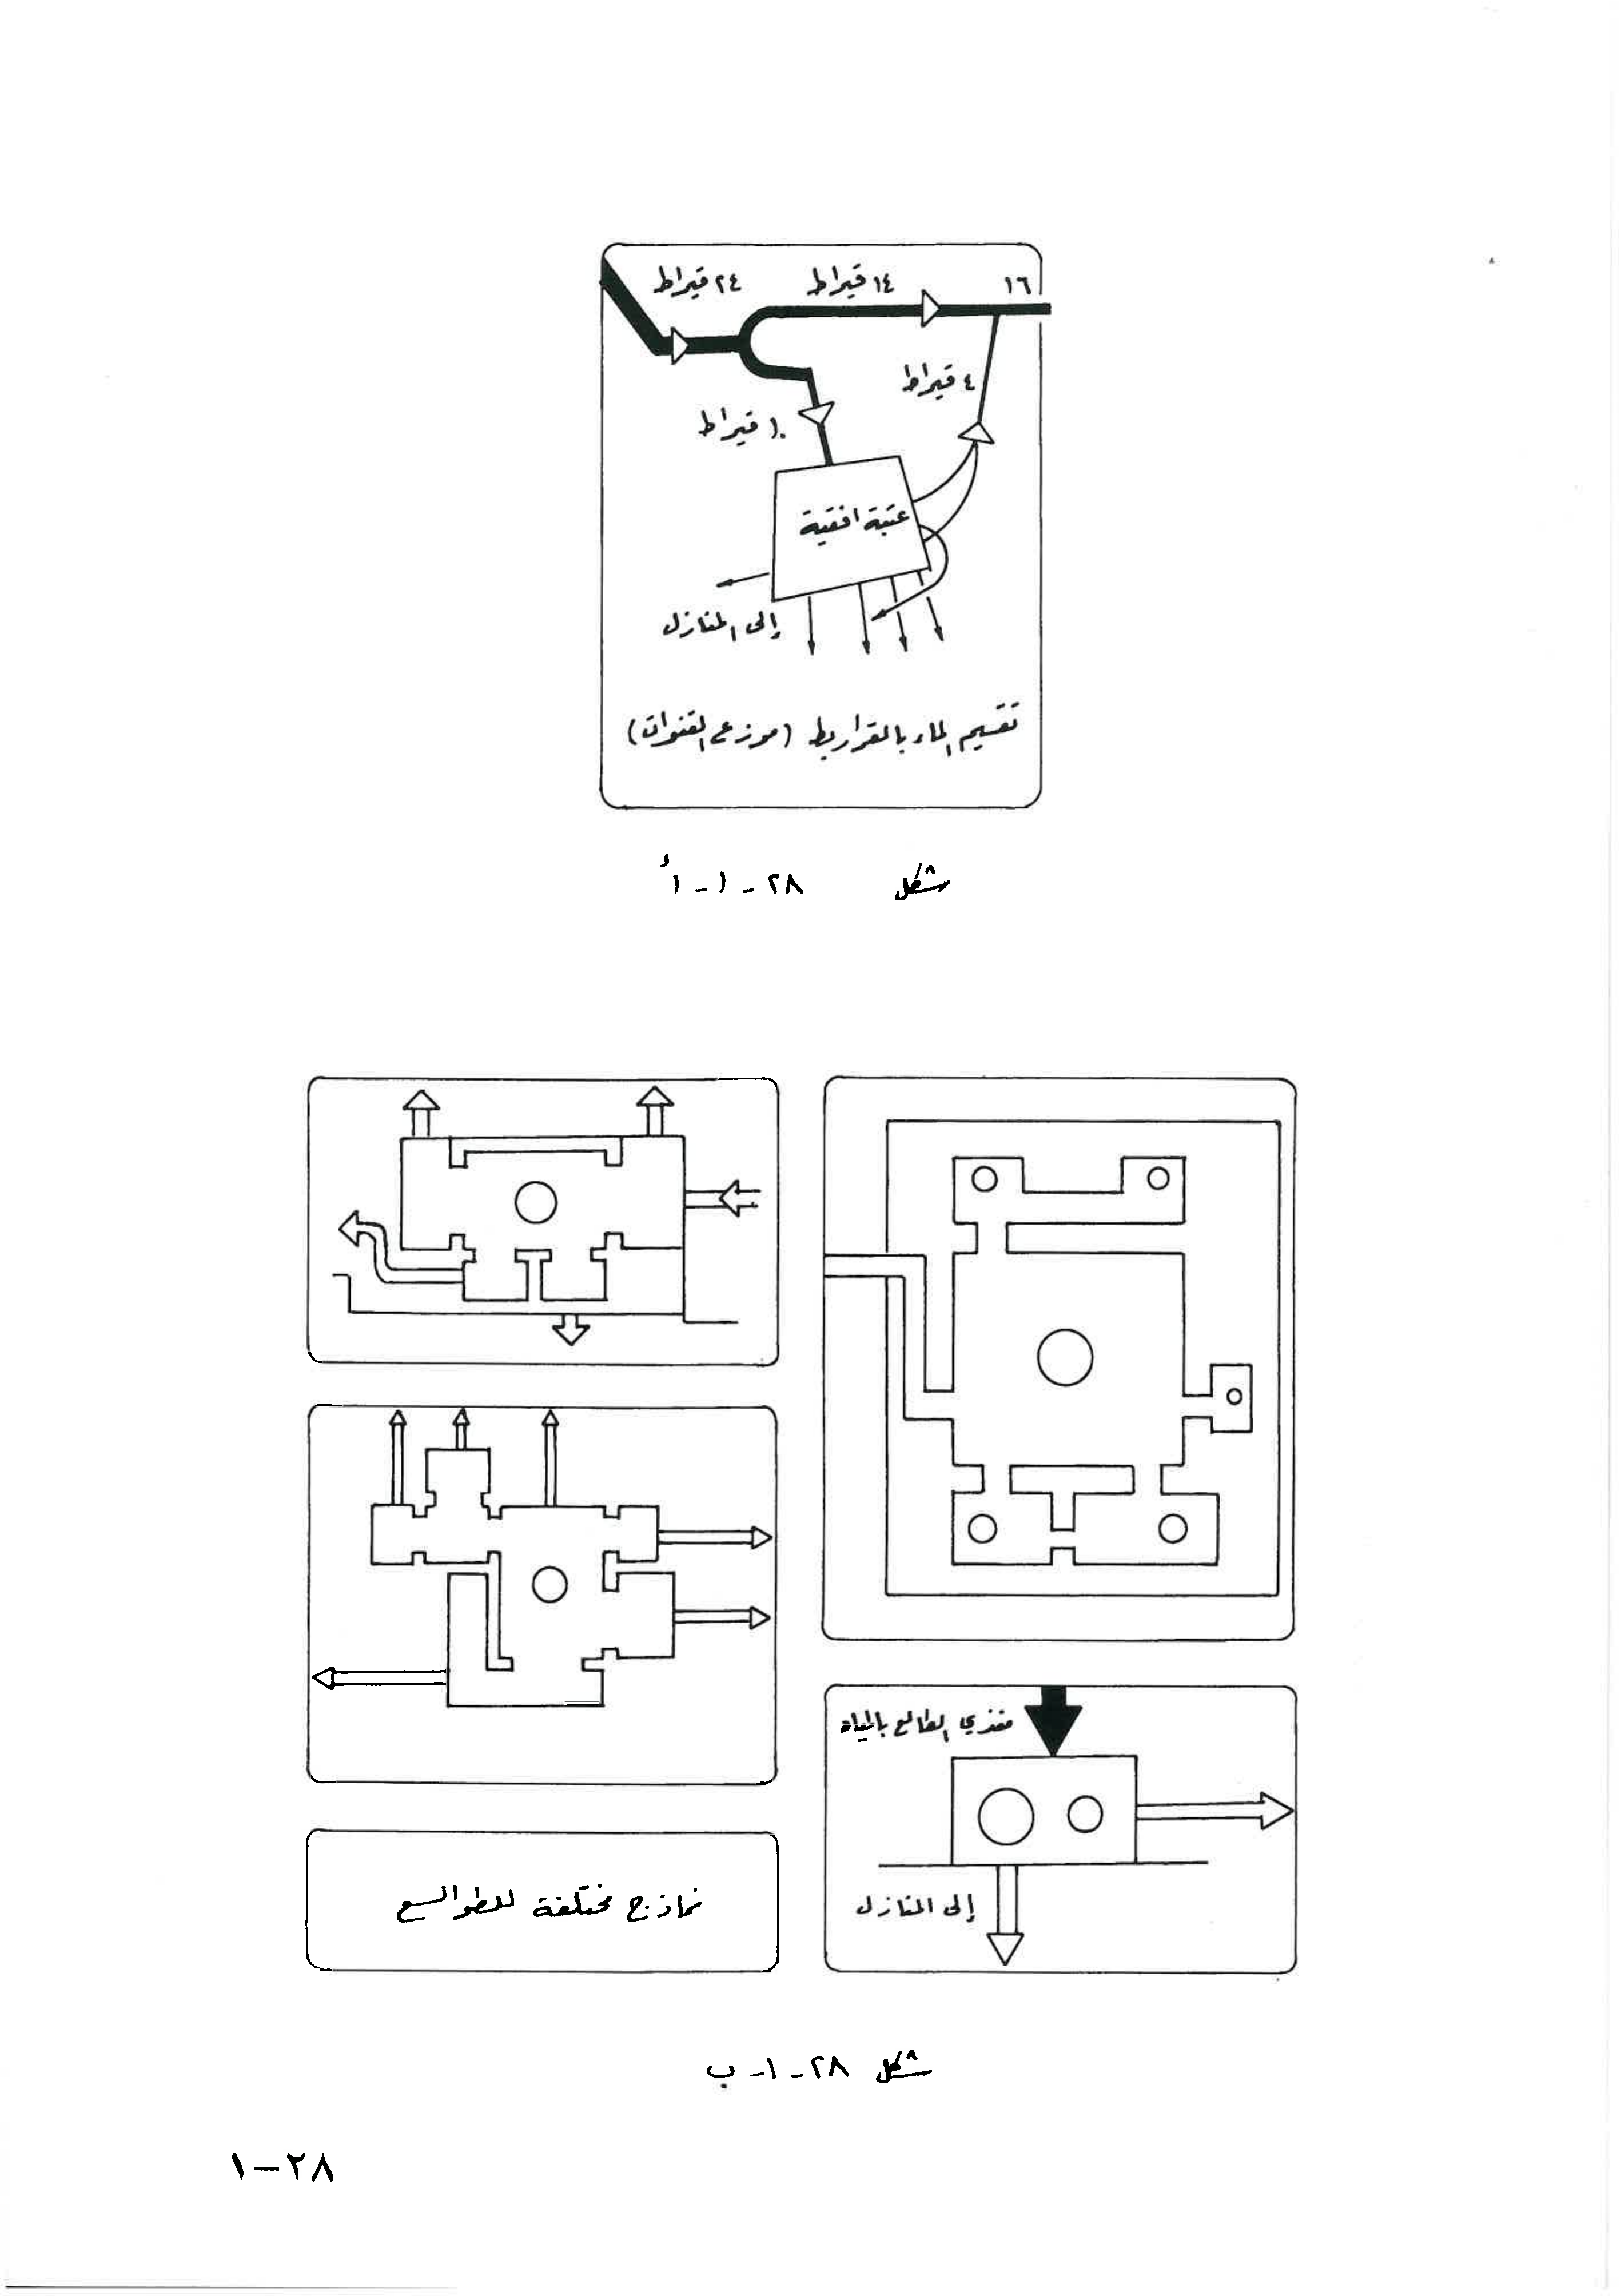 ٢٤ قيراط
١٤ قيراط
١٦
٤ قيراط
١٠ قيراط
عتبة افقية
إلى المنازل
تقسيم الماء بالقراريط (موزع القنوات)
شكل ٢٨-١-أ
مغذي الطالع بالمياه
إلى المنازل
نماذج مختلفة للطوالع
شكل ٢٨-١-ب
٢٨-١